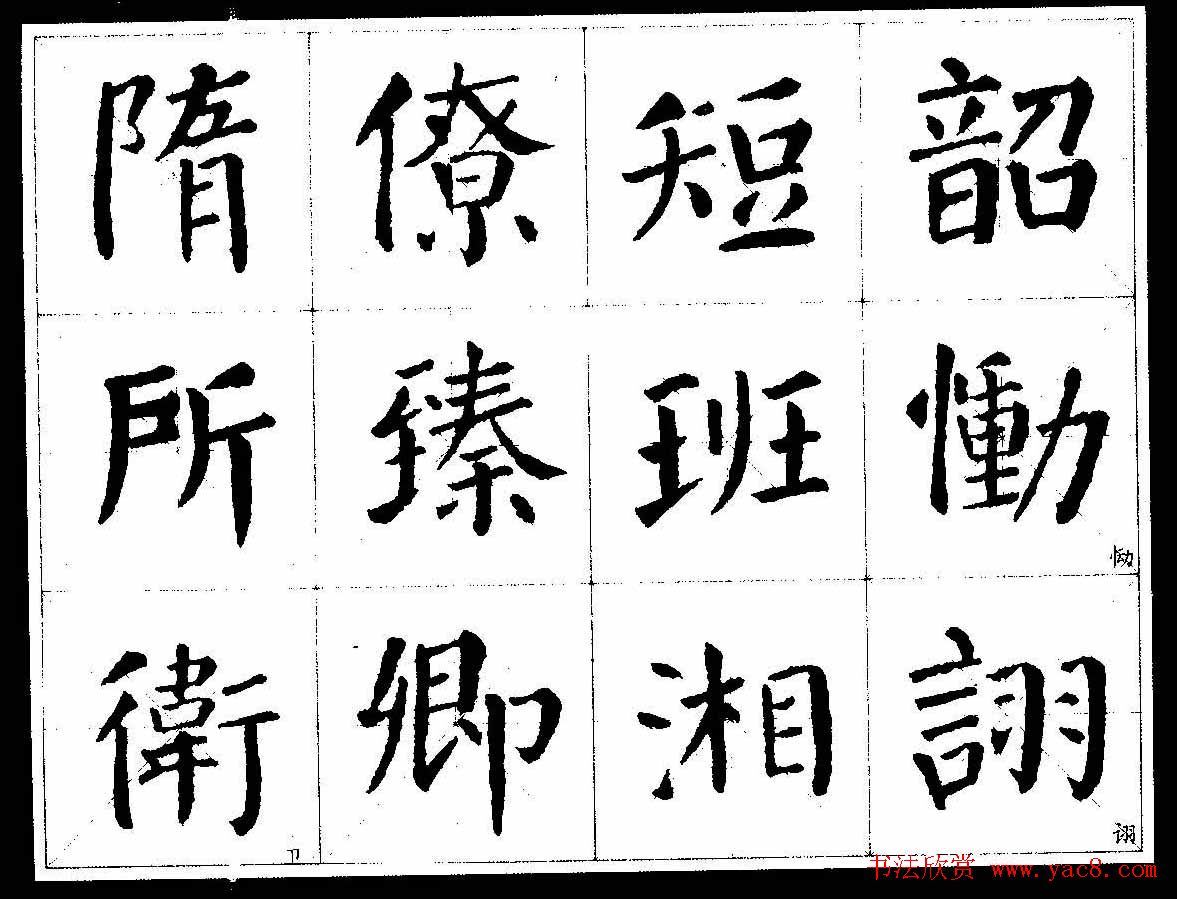 韶慟詡
恸
诩
短班湘
僚臻卿
隋所衛
书法欣赏 www.yac8.com